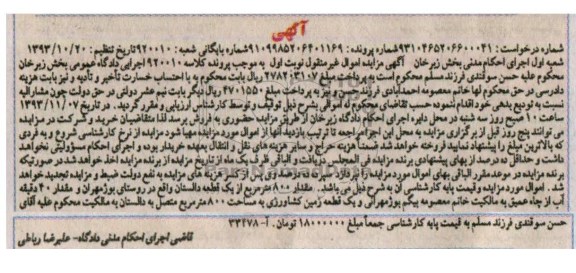 آگهی
شماره درخواست : ۹۳۱۰۴۶۵۲۰۶۶۰۰۰۴۱ شماره پرونده : ۹۱۰۹۹۸۵۲۰۶۴۰۱۱۶۹ شماره بایگانی شعبه : ۹۲۰۰۱۰ تاریخ تنظیم : ۱۳۹۳/۱۰/۲۰
شعبه اول اجرای احکام مدنی بخش زبرخان آگهی مزایده اموال غیرمنقول نوبت اول به موجب پرونده کلاسه ۹۲۰۰۱۰ اجرایی دادگاه عمومی بخش زبرخان
محکوم علیه حسن سوقندی فرزند مسلم محکوم است به پرداخت مبلغ ۲۷۸۲۰۳۱۰۷ ریال بابت محکوم به با احتساب خسارت تأخیر و تأدیه و نیز بابت هزینه
دادرسی در حق محکوم لها خانم معصومه احمدآبادی فرزند حسین و نیز به پرداخت مبلغ ۴۷۰۱۵۵۰ ریال دیگر بابت نیم عشر دولتی در حق دولت چون مشارالیه
نسبت به تودیع بدهی خود اقدام ننموده حسب تقاضای محکوم له اموالی بشرح ذیل توقیف و توسط کارشناس ارزیابی و مقرر گردید . در تاریخ ۱۳۹۳/۱۱/۰۷
ساعت ۱۰ صبح روز سه شنبه در محل دایره اجرای احکام دادگاه زبرخان از طریق مزایده حضوری به فروش برسد لذا متقاضیان خرید و شرکت در مزایده
می توانند پنج روز قبل از برگزاری مزایده به محل این اجرا مراجعه تا ترتیب بازدید آنها از اموال مورد مزایده مهیا شود مزایده از نرخ کارشناسی شروع و به فردی
که بالاترین مبلغ را پیشنهاد نماید فروخته خواهد شد ضمناً هزینه حراج و سایر هزینه های نقل و انتقال بعهده خریدار بوده و اجرای احکام مسؤولیتی نخواهد
داشت و حداقل ده درصد از بهای پیشنهادی برنده مزایده فی المجلس دریافت و الباقی ظرف یک ماه از تاریخ مزایده از برنده مزایده اخذ خواهد شد در صورتیکه
برنده مزایده در موعد مقرر الباقی بهای اموال مورد مزایده را نپردازد سپرده ده درصد پس از کسر هزینه های مزایده به نفع دولت ضبط و مزایده تجدید خواهد
شد . اموال مورد مزایده و قیمت پایه کارشناسی آن به شرح ذیل می باشد. مقدار ۸۰۰ مترمربع از یک قطعه دالستان واقع در روستای بوژمهران و مقدار ۴۰ دقیقه
آب از چاه عمیق به مالکیت خانم معصومه پیگم بوژمهرانی و یک قطعه زمین کشاورزی به مساحت ۸۰۰ مترمربع متصل به دالستان به مالکیت محکوم علیه آقای
حسن سوقندی فرزند مسلم به قیمت پایه کارشناسی جمعاً مبلغ ۱۸۰۰۰۰۰۰ تومان. آ-۳۳۴۷۸
قاضی اجرای احکام مدنی دادگاه- علیرضا رباطی